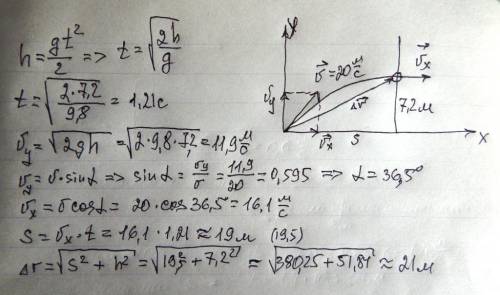 h = gt²/2 => t = √(2h/g)
t = √(2·7,2/9,8) = 1,21 с
υy = √(2gh) = √(2·9,8·7,2) = 11,9 м/с
υy = υ·sinα => sinα = υy/υ = 11,9/20 = 0,595 => α = 36,5°
υx = υcosα = 20·cos36,5° = 16,1 м/с
S = υx·t = 16,1·1,21 ≈ 19 м (19,5)
Δr = √(S² + h²) = √(19,5² + 7,2²) ≈ √(380,25 + 51,84) ≈ 21 м
y
υ⃗ = 20 м/с
υ⃗x
υy
Δr⃗
7,2 м
υ⃗x
S
x